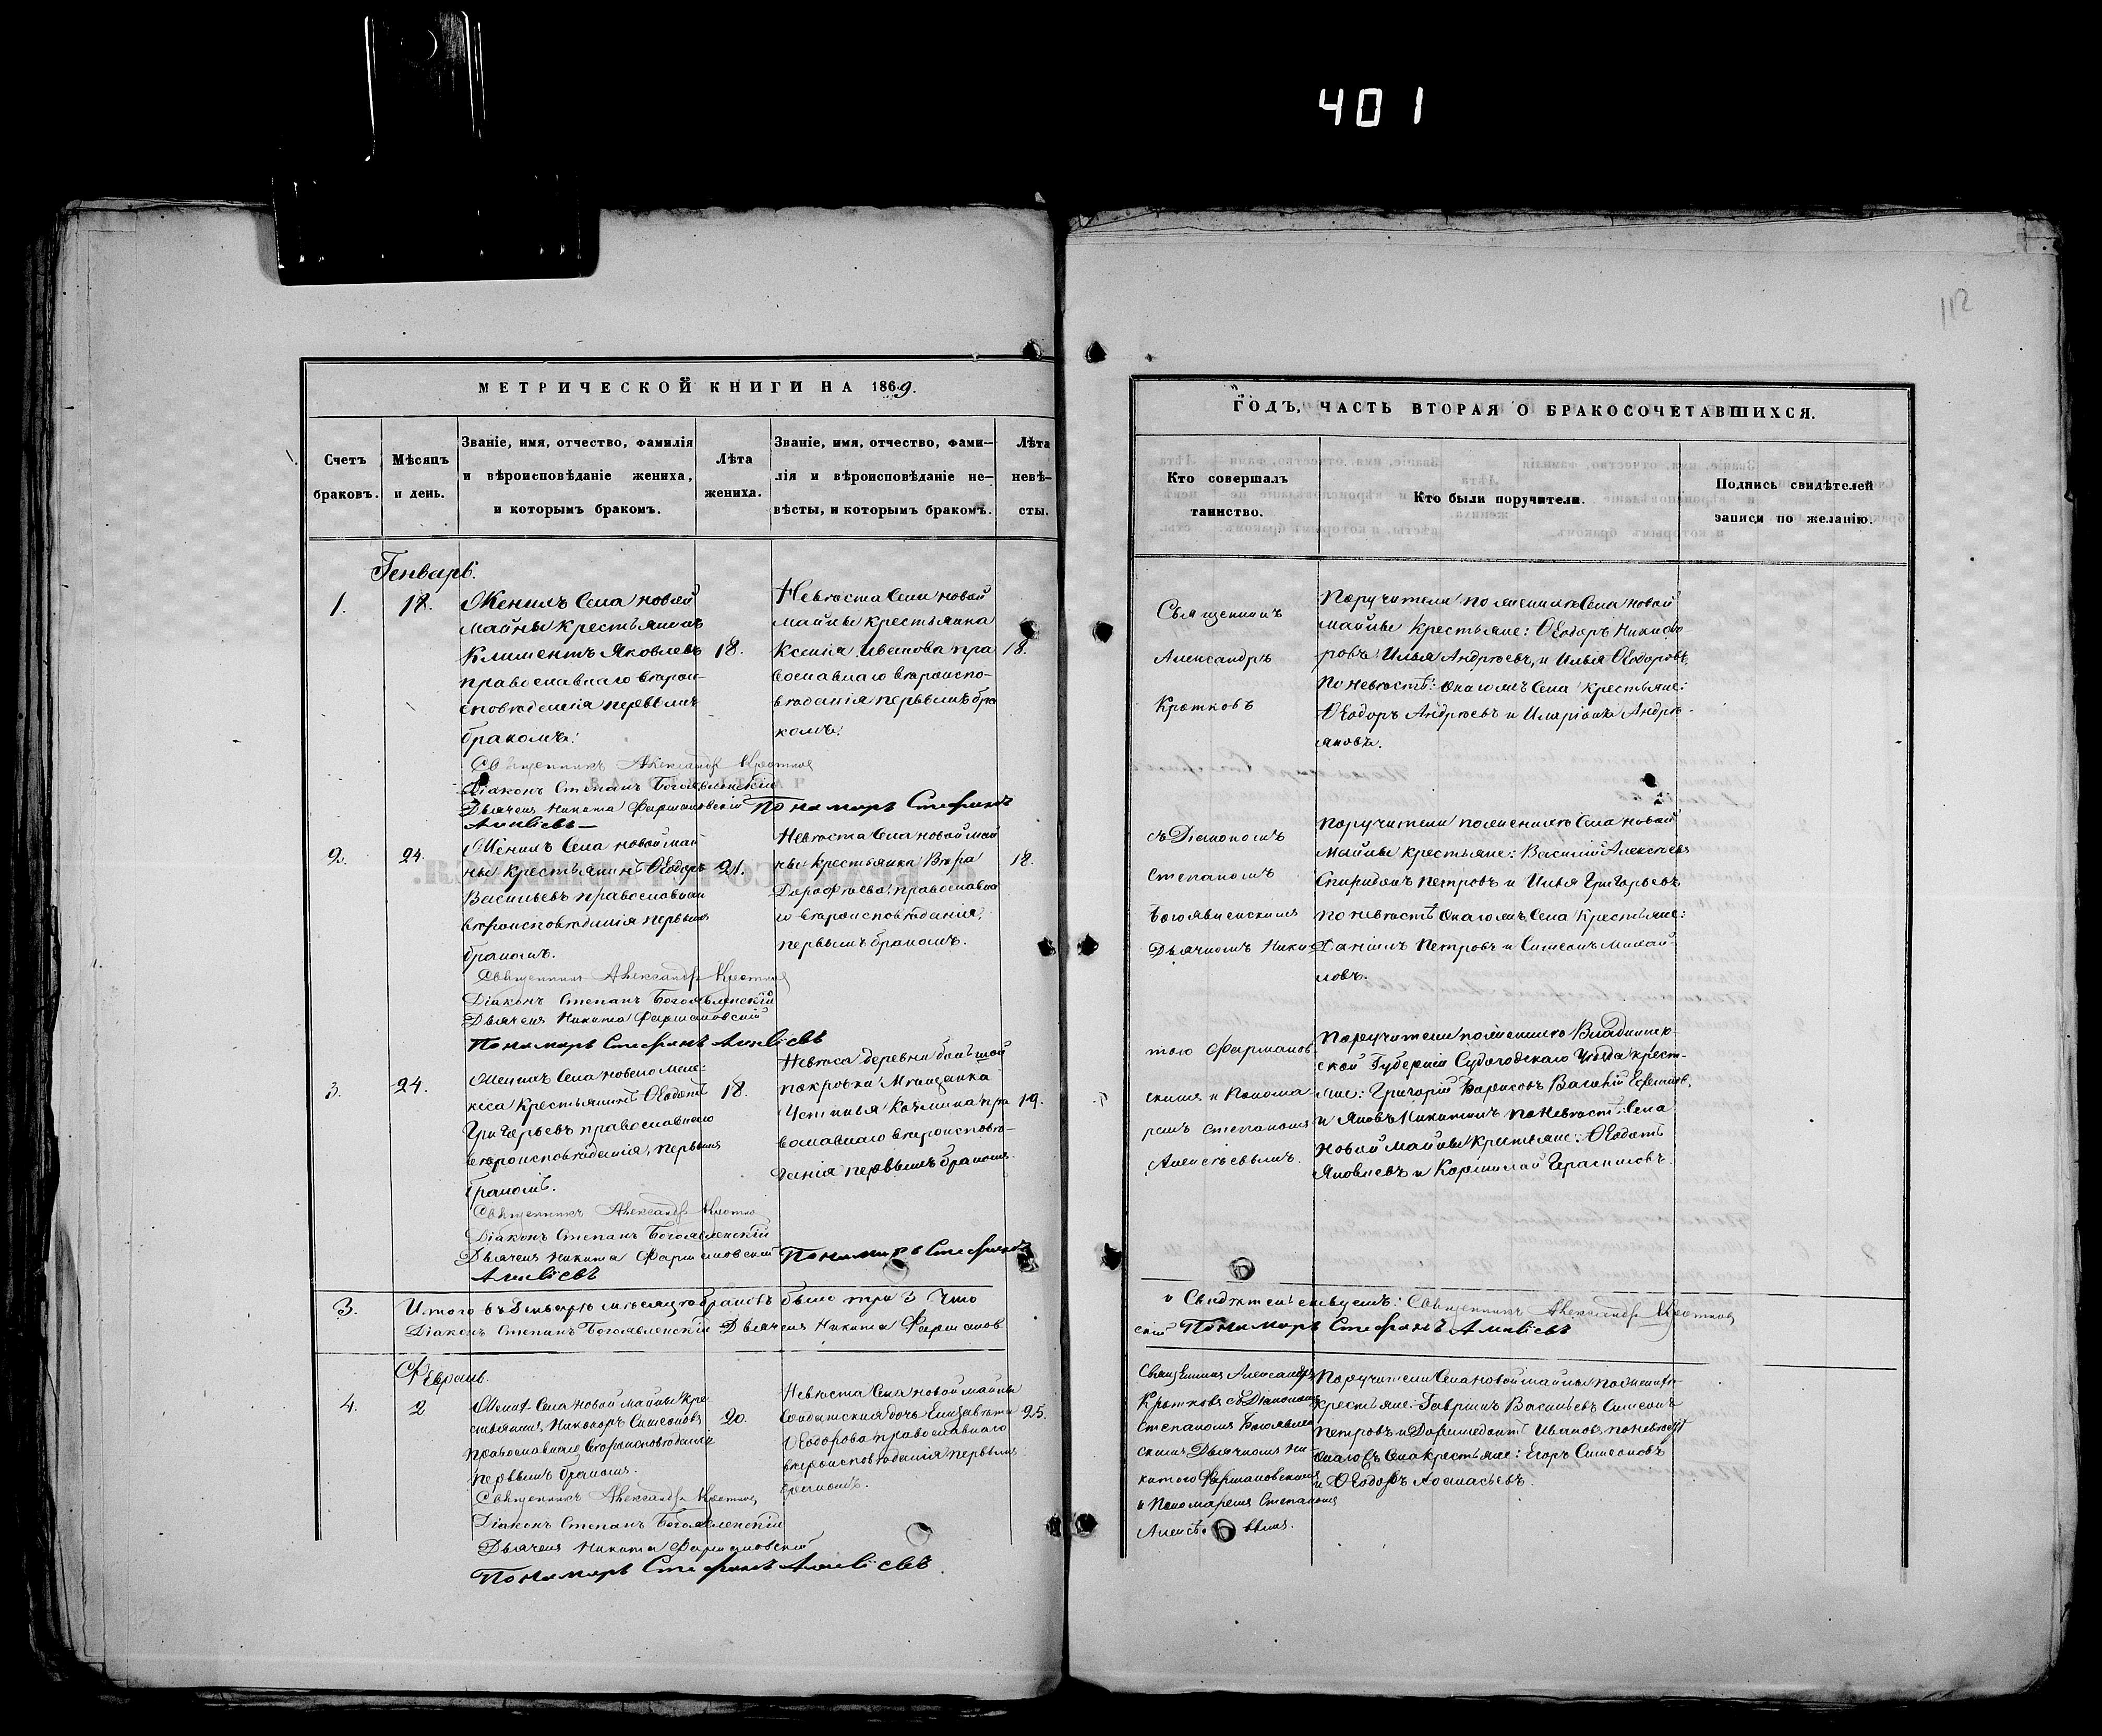 401
112
МЕТРИЧЕСКОЙ КНИГИ НА 1869.
Счетъ
браковъ.
Мѣсяцъ
и день.
Званіе, имя, отчество, фамилія
и вѣроисповѣданіе жениха,
и которымъ бракомъ.
Лѣта
жениха.
Званіе, имя, отчество, фами—
лія и вѣроисповѣданіе не—
вѣсты, и которымъ бракомъ.
Лѣта
невѣ-
сты.
Генварь.
1.
Женихъ Села новой
майны крестьянинъ
Климентъ Яковлевъ
православнаго вѣрои-
сповѣданія первымъ
бракомъ.
18.
Невѣста Села новой
майны крестьянка
Ксенія Иванова пра
вославнаго вѣроиспо-
вѣданія первымъ бра
комъ.
18.
Священникъ Александръ Кротковъ
Діаконъ Степанъ Богоявленскій
Дьячекъ Никита
Пономарь Стефанъ
2.
24.
Женихъ Села новой май
ны крестьянинъ Ѳеодоръ
Васильевъ православнаго
вѣроисповѣданія первымъ
бракомъ.
21.
Невѣста Села новой май
ны крестьянка Вѣра
Дорофѣева православна
го вѣроисповѣданія,
первымъ бракомъ.
18.
Священникъ Александръ Кротковъ
Діаконъ Степанъ Богоявленскій
Дьячекъ Никита
Пономарь Стефанъ
3.
24.
Женихъ Села
крестьянинъ Ѳедотъ
Григорьевъ православнаго
вѣроисповѣданія, первымъ
бракомъ.
18.
деревни большой
покровки
Устинья Козмина пра
вославнаго вѣроисповѣ-
данія первымъ бракомъ.
19.
Священникъ Александръ Кротковъ
Діаконъ Степанъ Богоявленскій
Дьячекъ Никита
Пономарь Стефанъ
3.
Итого въ Генварѣ мѣсяцѣ браковъ было три 3 Что
Діаконъ Степанъ Богоявленскій Дьячекъ Никита
Февраль.
4.
2
Села новой майны кре
стьянинъ Никаноръ Симеоновъ
православнаго вѣроисповѣданія
первымъ бракомъ.
20.
Невѣста Села новой майны
Солдатская дочь Елизавета
Ѳеодорова православнаго
вѣроисповѣданія первымъ
бракомъ.
25.
Священникъ Александръ Кротковъ
Діаконъ Степанъ Богоявленскій
Дьячекъ Никита
Пономарь Стефанъ
ГОДЪ, ЧАСТЬ ВТОРАЯ О БРАКОСОЧЕТАВШИХСЯ.
Кто совершалъ
таинство.
Кто были поручители.
Подпись свидѣтелей
записи по желанію.
Священникъ
Александръ
Кротковъ
съ Діакономъ
Степаномъ
Богоявленскимъ
Дьячкомъ Ники
тою
скимъ и Понома
ремъ Степаномъ
Алексѣевымъ.
Поручители по женихѣ Села новой
майны крестьяне: Ѳеодоръ Никифо
ровъ Илья Андрѣевъ, и Илья Ѳеодоровъ,
По невѣстѣ: Села крестьяне:
Ѳеодоръ Андрѣевъ и Иларіонъ
Поручители по женихѣ Села новой
майны крестьяне: Василій Алексѣевъ
Спиридонъ Петровъ и Илья Григорьевъ
по невѣстѣ Села крестьяне:
Даніилъ Петровъ и Симеонъ Михай-
ловъ.
Поручители по женихѣ Владимір-
ской Губерніи Судогодскаго Уѣзда крест-
яне: Григорій Борисовъ Василій
и Яковъ Никитинъ по невѣстѣ: Села
новой майны крестьяне: Ѳедотъ
Яковлевъ и Герасимовъ.
и Свидѣтельствуемъ: Священникъ Александръ Кротковъ
скій Пономарь Стефанъ
Священникъ Александръ
Кротковъ съ Діакономъ
Степаномъ Богоявлен
скимъ Дьячкомъ Ни-
китою
и Пономаремъ Степаномъ
Поручители Села новой майны по женихѣ
крестьяне: Гавріилъ Васильевъ Симеонъ
Петровъ и Ивановъ, по невѣстѣ
Села крестьяне: Егоръ Симеоновъ
и Ѳеодоръ Аѳанасьевъ.